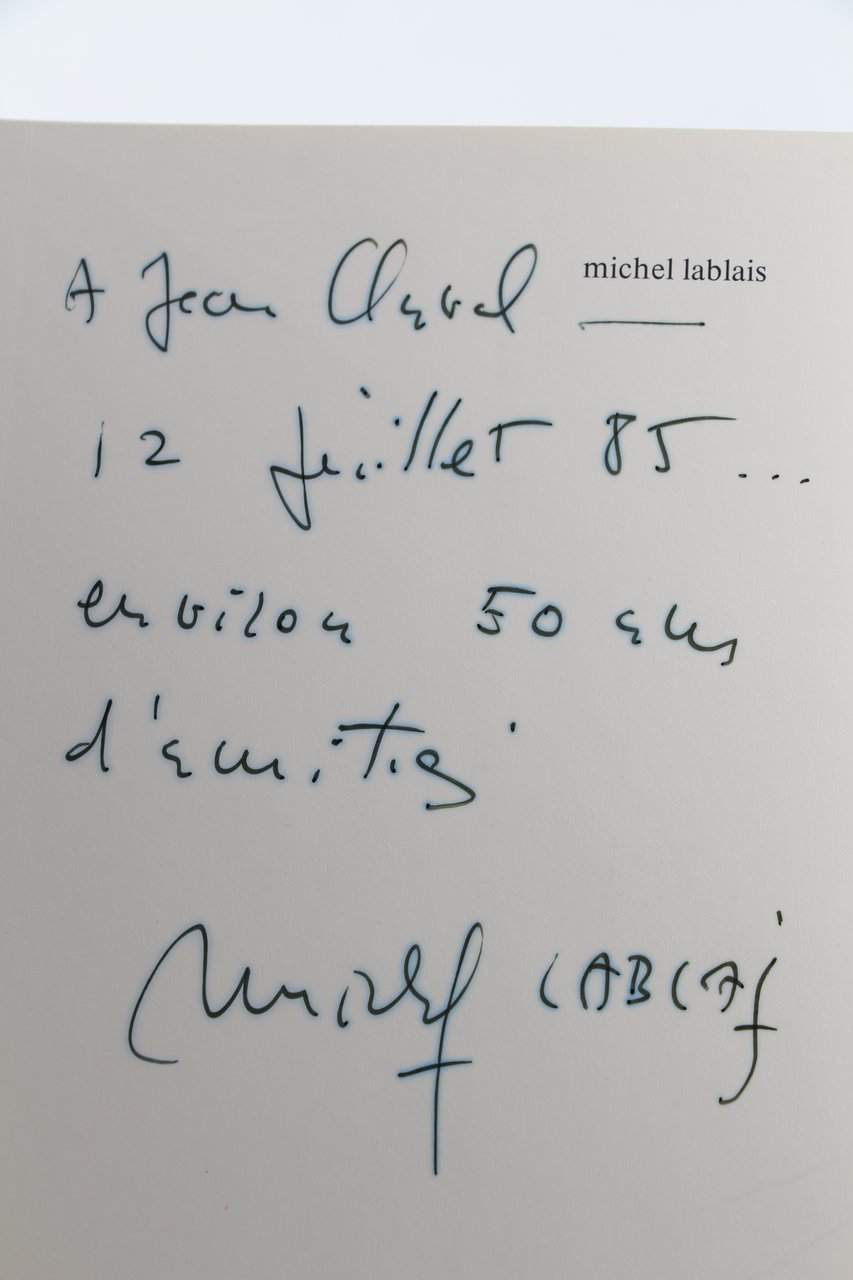 A Jean Cheval michel lablais
12 juillet 85...
environ 50 ans
d'amitié
Michel LABLAIS